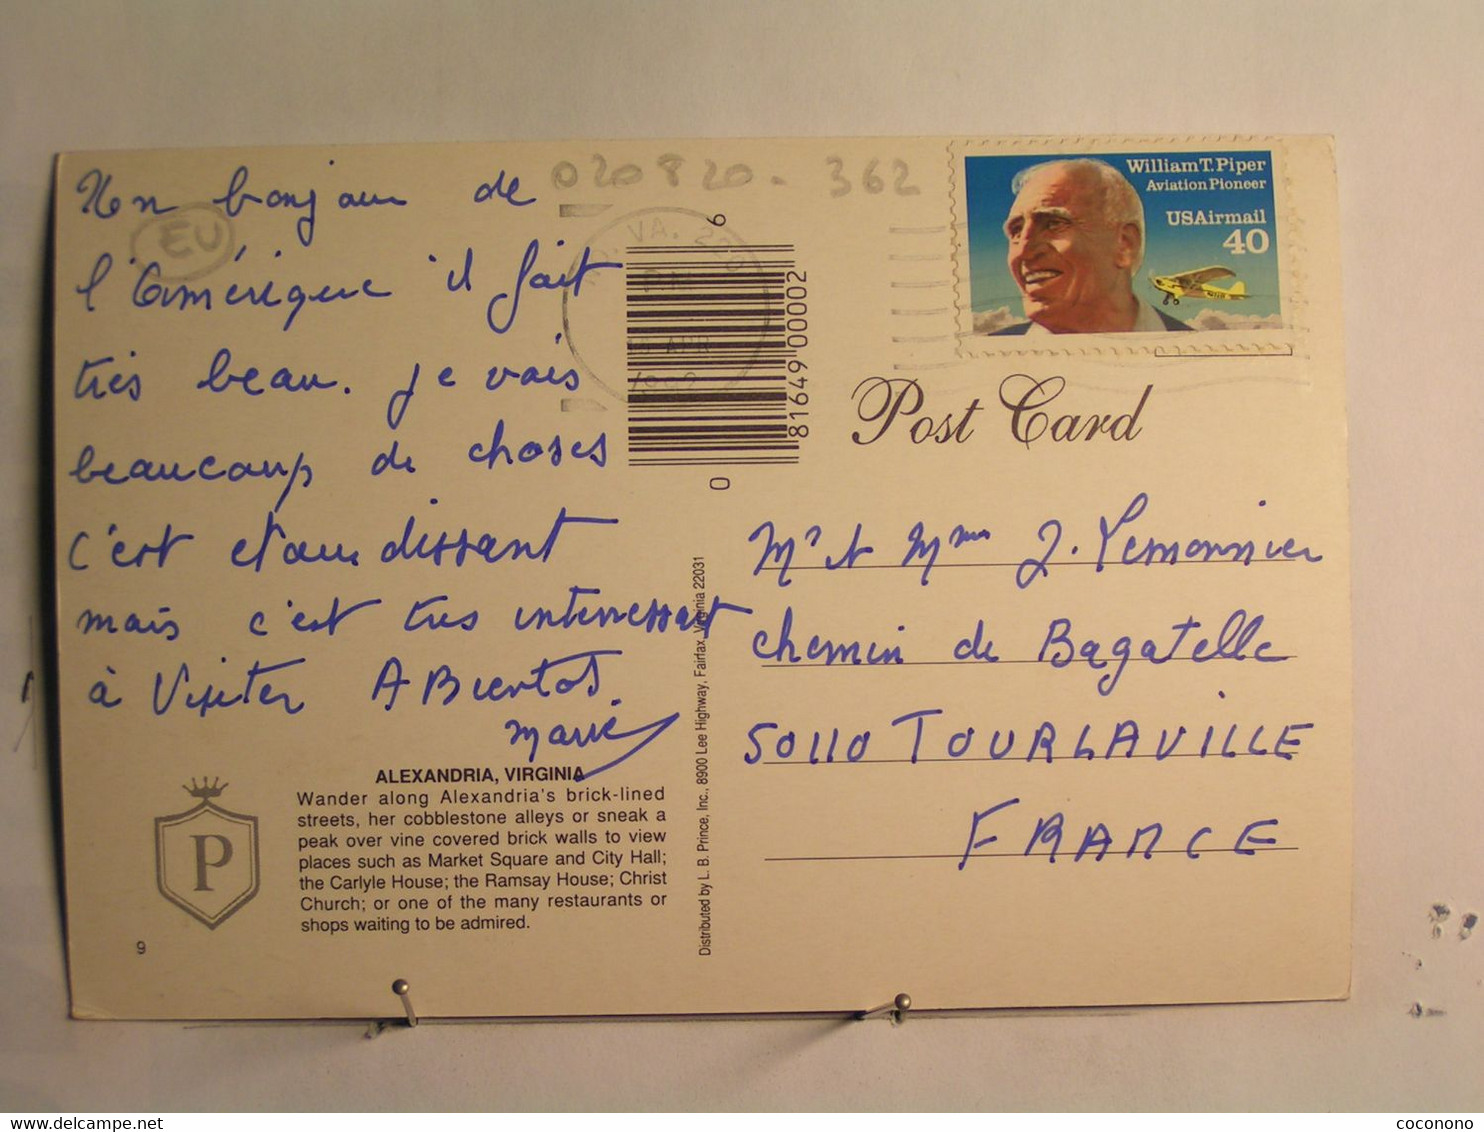 Un bonjour de
l'Amérique il fait
très beau. je vais
beaucoup de choses
c'est etourdissant
mais c'est tres interressant
à Visiter A Bientot
Marie
EU
020820. 362
VA. 220
APR
1992
6
81649 00002
0
William T. Piper
Aviation Pioneer
USAirmail
40
Post Card
Mr et Mme J. Lemonnier
chemin de Bagatelle
50110 TOURLAVILLE
FRANCE
ALEXANDRIA, VIRGINIA
Wander along Alexandria's brick-lined
streets, her cobblestone alleys or sneak a
peak over vine covered brick walls to view
places such as Market Square and City Hall;
the Carlyle House; the Ramsay House; Christ
Church; or one of the many restaurants or
shops waiting to be admired.
P
9
Distributed by L. B. Prince, Inc., 8900 Lee Highway, Fairfax, Virginia 22031
coconono